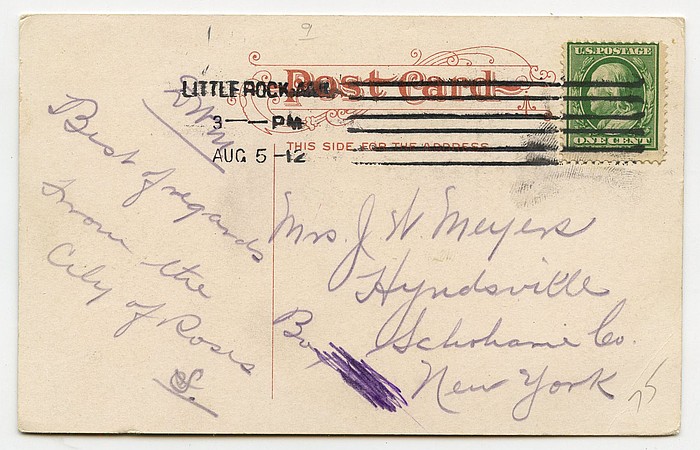 9
Post Card
U.S. POSTAGE
LITTLE ROCK, ARK.
3 — PM
AUG 5 -12
ONE CENT
THIS SIDE FOR THE ADDRESS
Best of regards
from the
City of Roses
S.
Mrs. J W Meyers
Hyndsville
Box
Schoharie Co.
New York